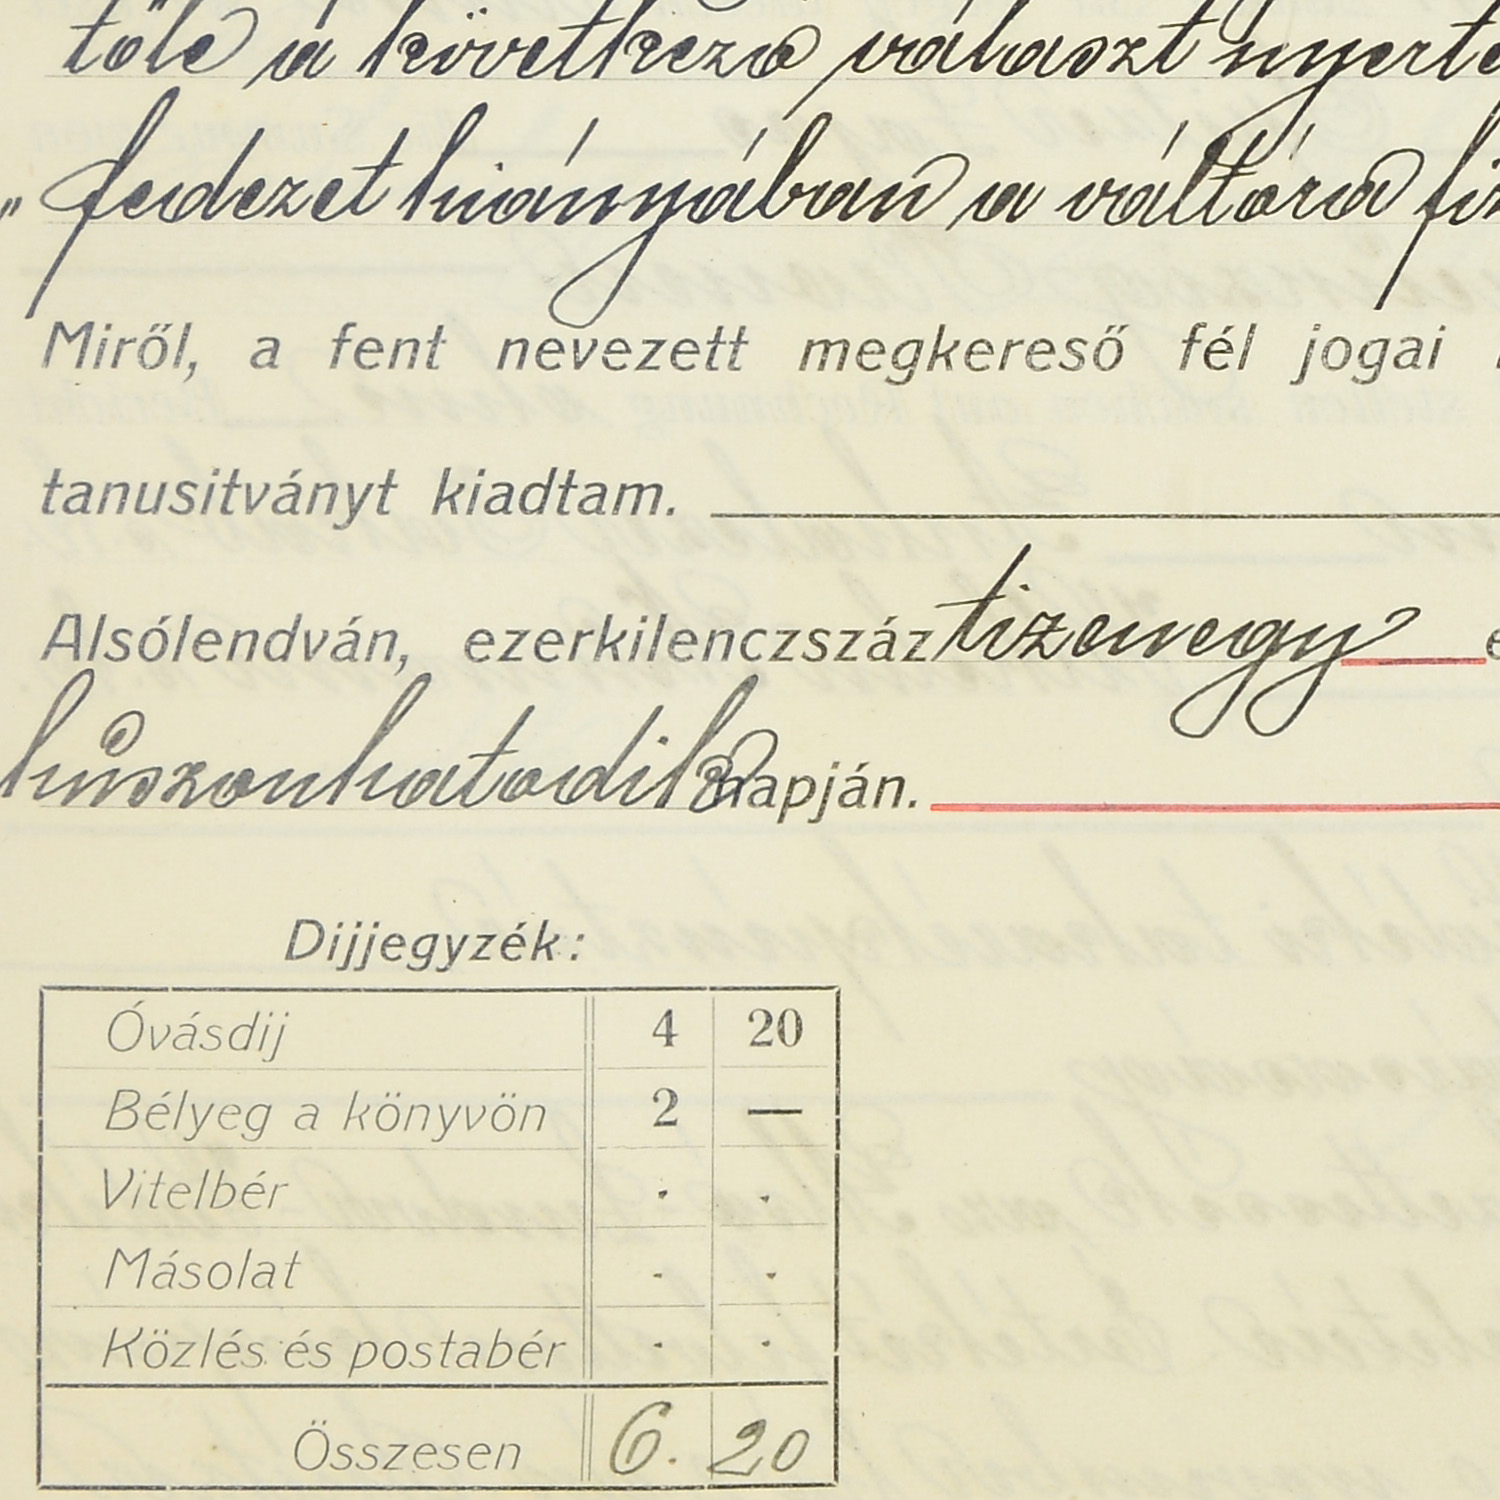 tőle a következő választ nyerte
„fedezet hiányában a váltóra fiz
Miről, a fent nevezett megkereső fél jogai
tanusitványt kiadtam.
Alsólendván, ezerkilenczszáz tizenegy e
huszonhatodik napján.
Dijjegyzék:
Óvásdij 4 20
Bélyeg a könyvön 2 —
Vitelbér . .
Másolat . .
Közlés és postabér . .
Összesen 6. 20